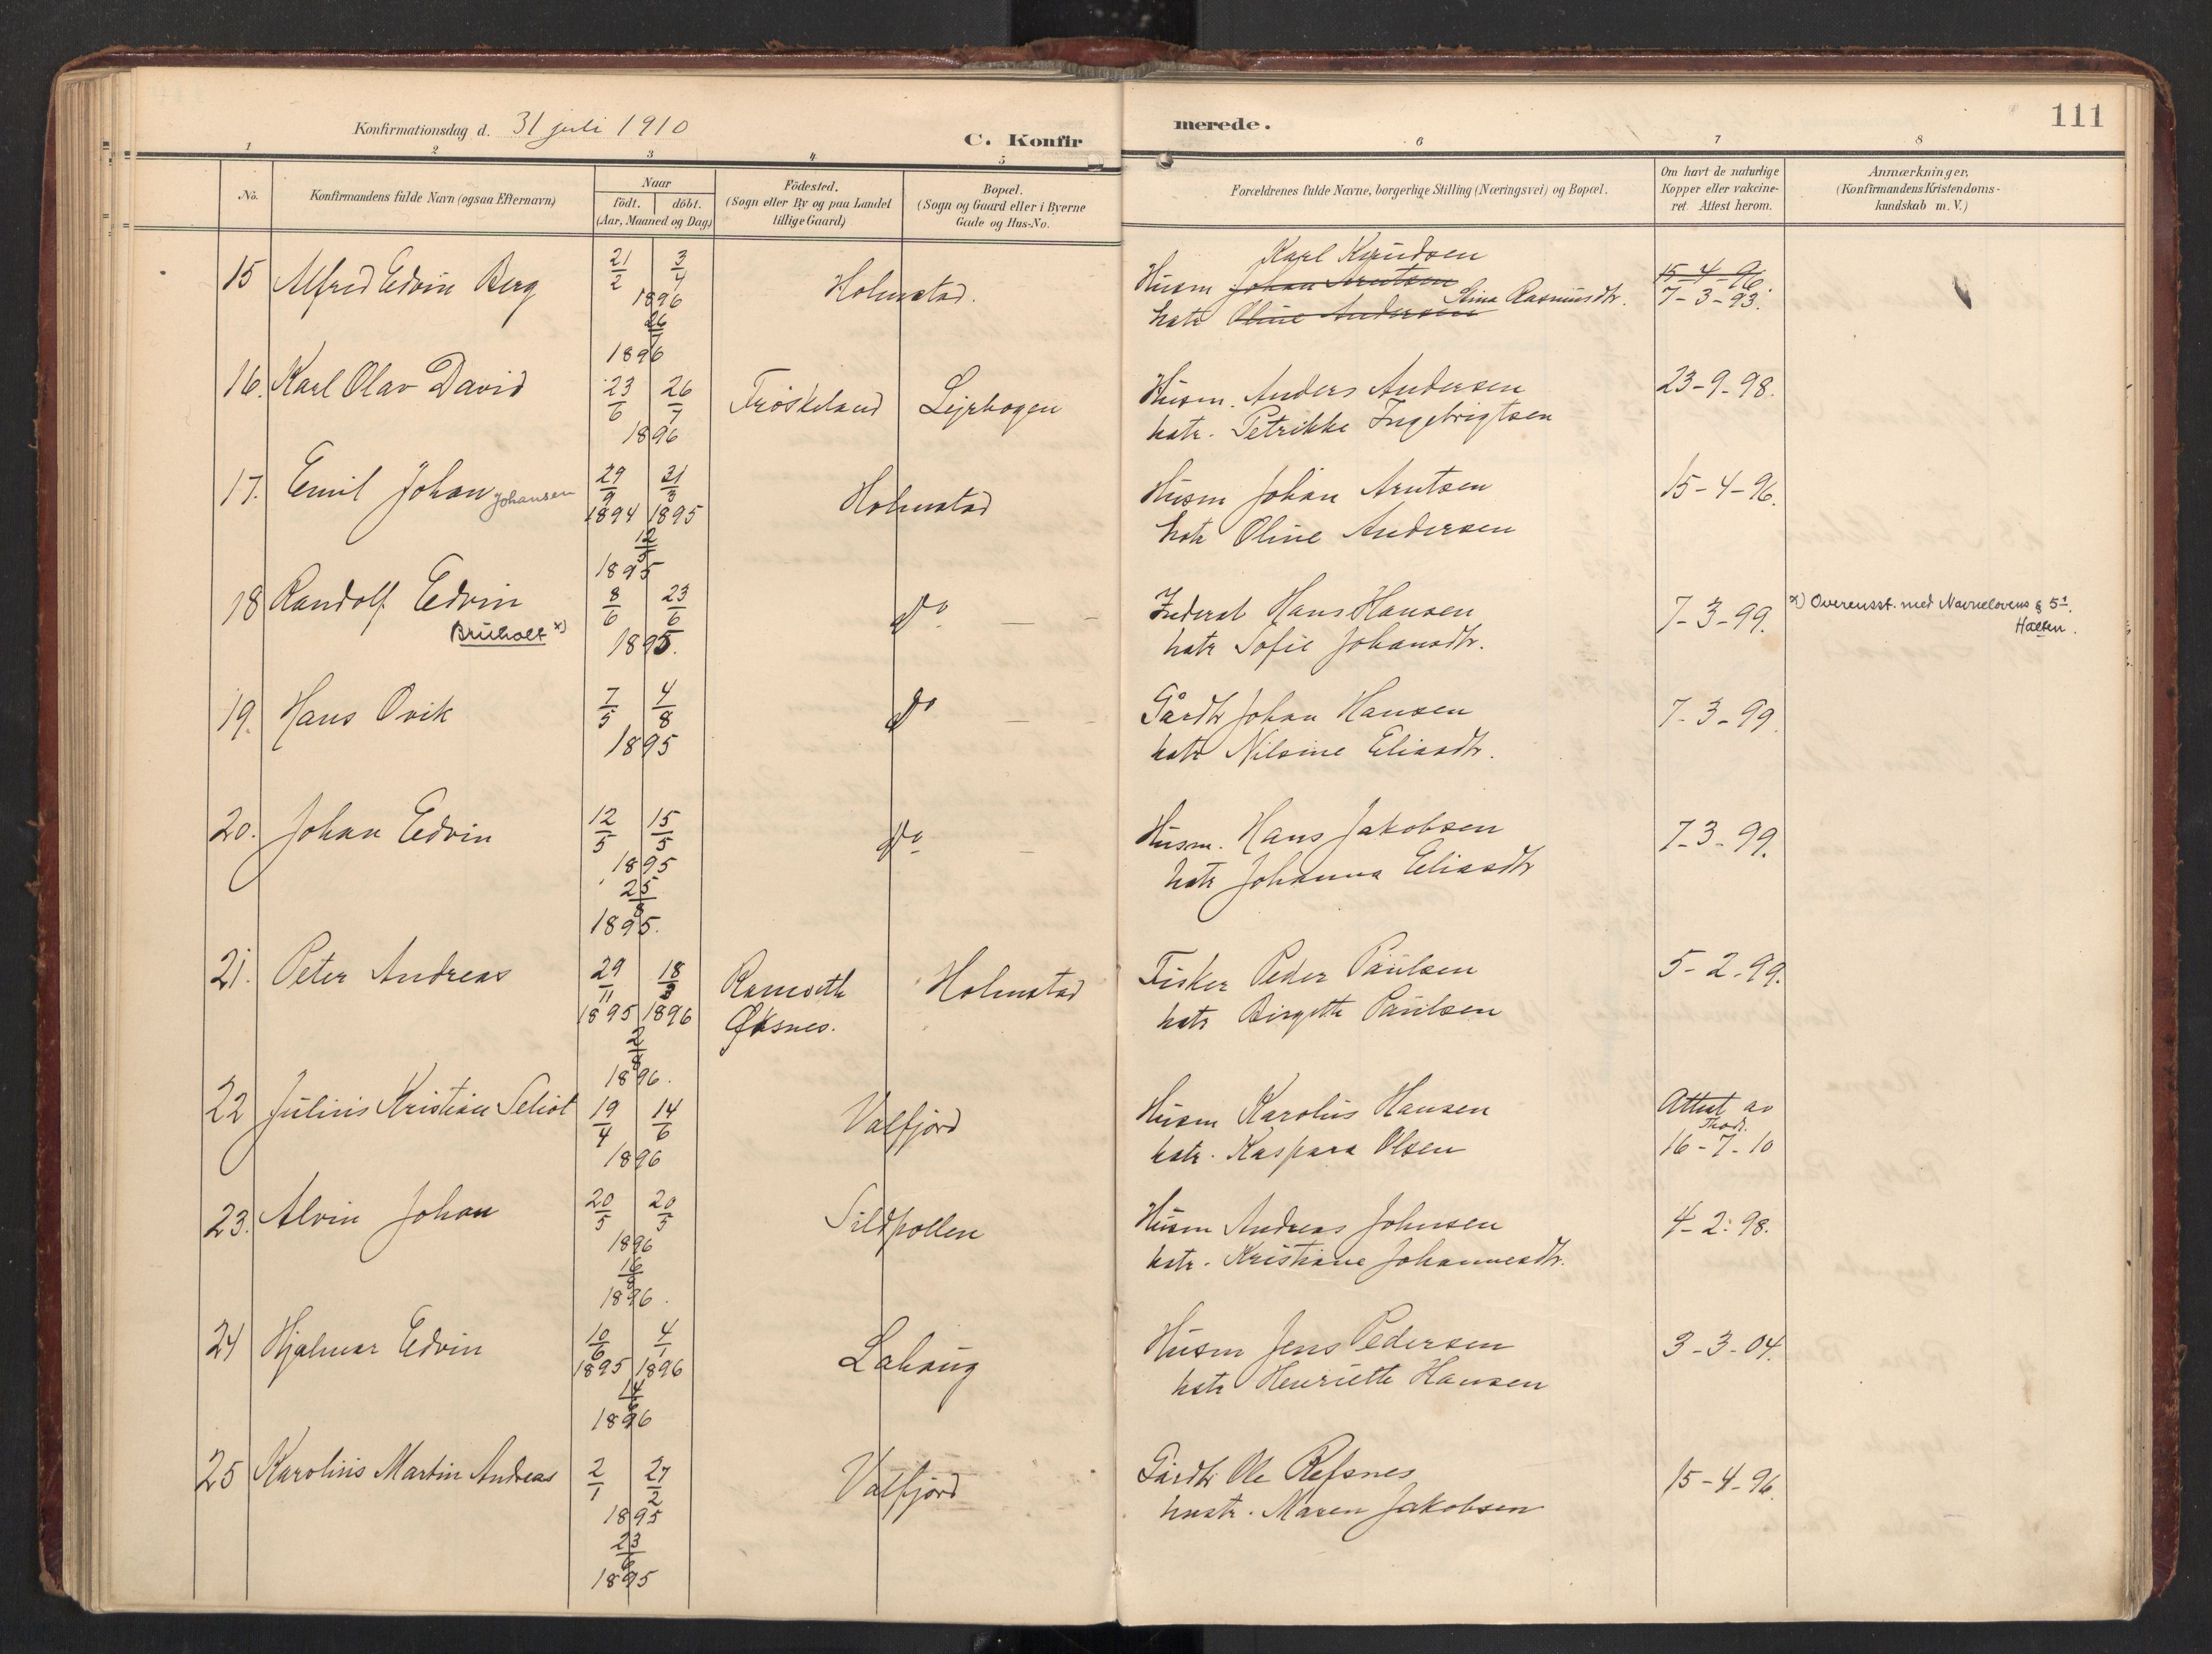 Konfirmationsdag d. 31 juli 1910
C. Konfir
merede.
111
1 2 3 4 5 6 7 8
No.
Konfirmandens fulde Navn (ogsaa Efternavn)
Naar
födt. döbt.
(Aar, Maaned og Dag)
Födested.
(Sogn eller By og paa Landet
tillige Gaard)
Bopæl.
(Sogn og Gaard eller i Byerne
Gade og Hus-No.
Forældrenes fulde Navne, borgerlige Stilling (Næringsvei) og Bopæl.
Om havt de naturlige
Kopper eller vakcine-
ret. Attest herom.
Anmærkninger,
(Konfirmandens Kristendoms-
kundskab m. V.)
15 Alfred Edvin Berg 21/2 3/4 1896 Holmstad.
26/7 1896
Karl Knudsen
Husm Johan Arntsen
Stina Rasmusdtr.
hstr Oline Andersen
15-4-96.
7-3-93.
16. Karl Olav David 23/6 26/7 1896 Frøskeland Lejrhogen
Husm. Anders Andersen 23-9-98.
hstr. Petrikke Ingebrigtsen
17. Emil Johan Johansen 29/9 1894 31/3 1895 Holmstad
12/5 1895
Husm Johan Arntsen 15-4-96.
hstr Oline Andersen
18 Randolf Edvin 8/6 23/6 1895. do — -
Bruholt x)
Inderst Hans Hansen 7-3-99.
hstr Sofie Johansdtr.
x) Overensst. med Navnelovens § 5 1.
19. Hans Ovik 7/5 4/8 1895 do — -
Gårdbr Johan Hansen 7-3-99.
hstr Nilsine Eliasdtr.
20. Johan Edvin 12/5 15/5 1895 do -
25/8 1895.
Husm. Hans Jakobsen 7-3-99.
hstr Johanna Eliasdtr
21. Peter Andreas 29/11 1895 18/3 1896 Holmstad
Øksnes.
2/8 1896.
Fisker Peder Paulsen 5-2-99.
hstr Birgitte Paulsen
22 Julius Kristian Seliot 19/4 14/6 1896 Valfjord
Husm Karolius Hansen Attest av
hstr. Kaspara Olsen 16-7-10
23. Alvin Johan 20/5 20/5 1896 Sildpollen
16/8 1896.
Husm Andreas Johnsen 4-2-98.
hstr. Kristiane Johannesdtr.
24 Hjalmar Edvin 10/6 1895 4/1 1896 Lahaug
14/6 1896
Husm Jens Pedersen 3-3-04.
hstr Henriette Hansen
25 Karolius Martin Andreas 2/1 27/2 1895 Valfjord
23/6 1895
Gårdbr Ole Refsnes 15-4-96.
hustr. Maren Jakobsen